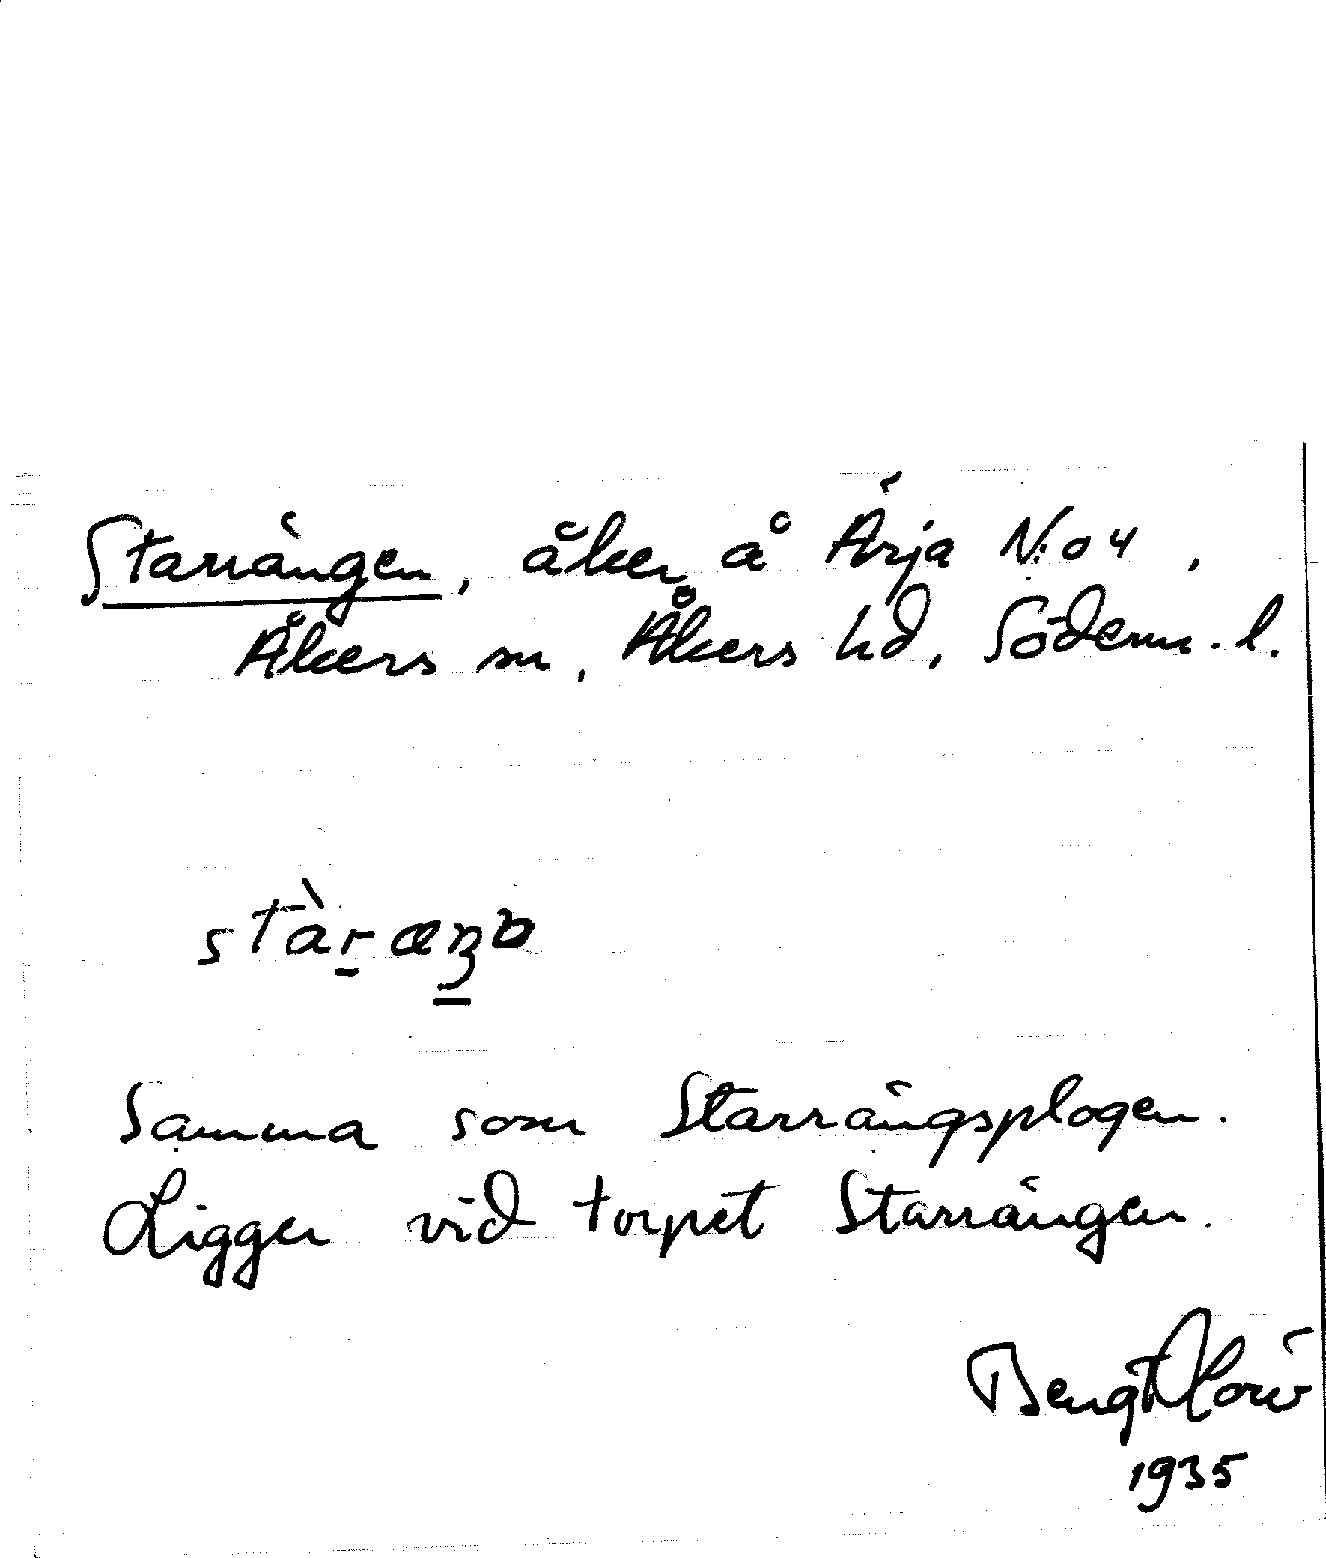 Starrängen, åker å Ärja No 4,
Åkers sn, Åkers hd, Söderm. l.
Samma som Starrängsplogen.
Ligger vid torpet Starrängen.
Bengt
1935